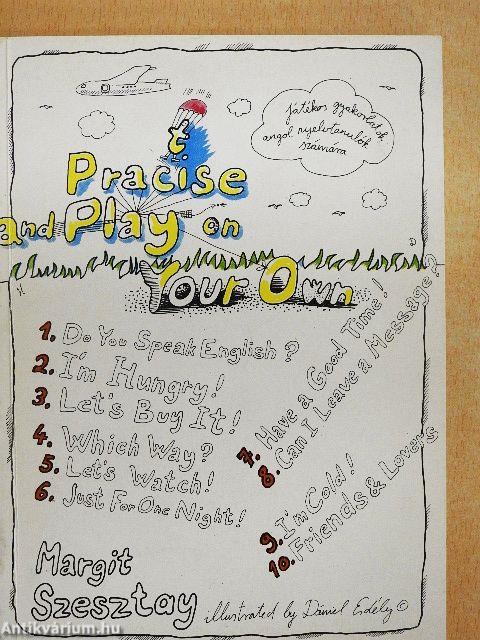 játékos gyakorlatok
angol nyelvtanulók
számára
t
Pracise
and Play on
Your Own
1. Do You Speak English?
2. I'm Hungry!
3. Let's Buy It!
4. Which Way?
5. Let's Watch!
6. Just For One Night!
7. Have a Good Time!
8. Can I Leave a Message?
9. I'm Cold!
10. Friends & Lovers
Margit
Szesztay
illustrated by Dániel Erdély ©
Antikvárium.hu